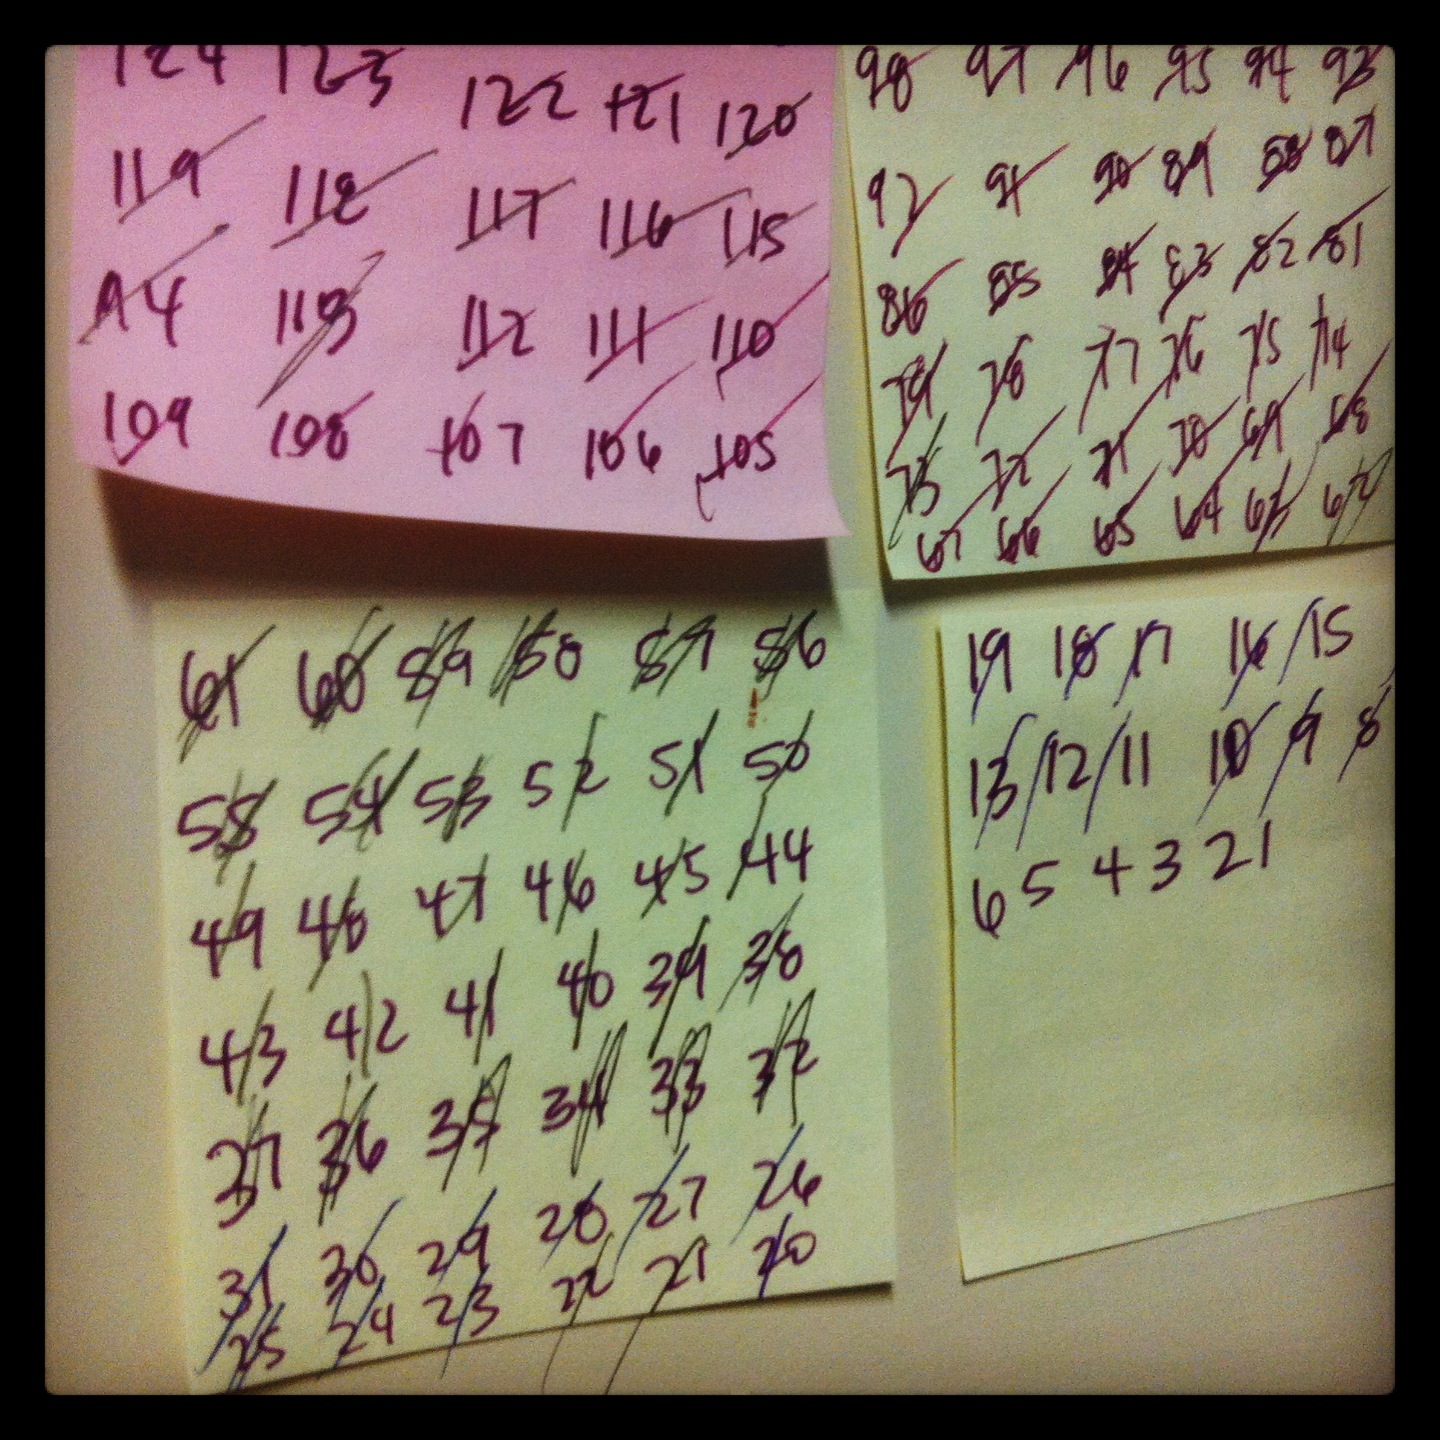 124 123 122 121 120
119 118 117 116 115
114 113 112 111 110
109 108 107 106 105
98 97 96 95 94 93
92 91 90 89 88 87
86 85 84 83 82 81
79 78 77 76 75 74
73 72 71 70 69 68
67 66 65 64 63 62
61 60 59 58 57 56
55 54 53 52 51 50
49 48 47 46 45 44
43 42 41 40 39 38
37 36 35 34 33 32
31 30 29 28 27 26
25 24 23 22 21 20
19 18 17 16 15
13 12 11 10 9 8
6 5 4 3 2 1